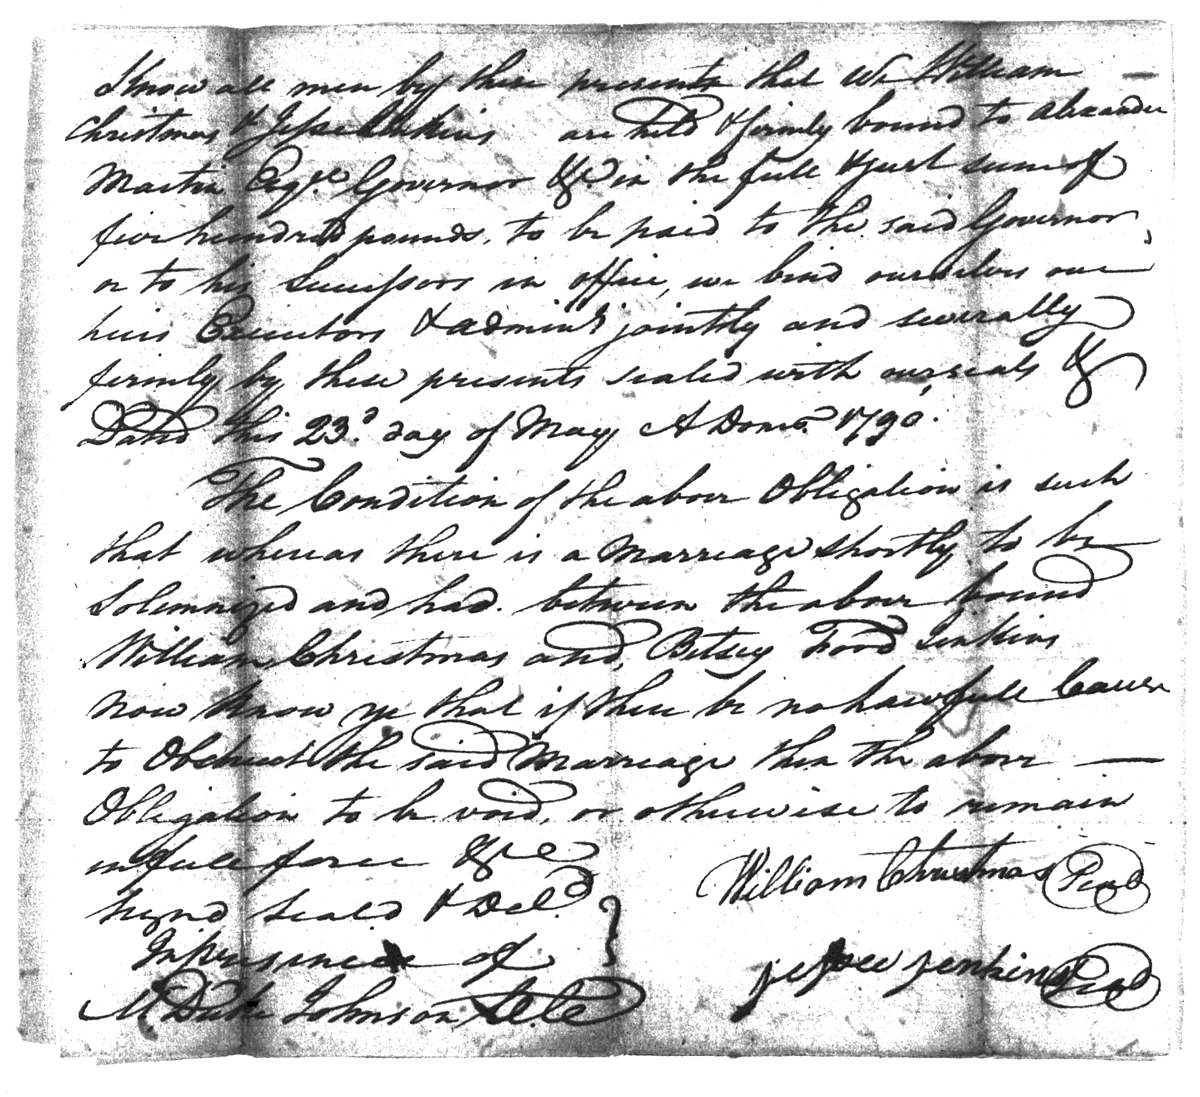 Know all men by these presents that We William
Christmas & Jesse Jenkins are held & firmly bound to Alexander
Martin Esqre. Governor &c. in the full & just sum of
five hundred pounds, to be paid to the said Governor,
or to his Successors in office, we bind ourselves our
heirs Executors & admins jointly and severally
firmly by these presents sealed with our seals &
Dated this 23d. day of May A Domo. 1790.
The Condition of the above Obligation is such
that whereas there is a Marreage shortly to be
Solemnized and had. between the above bound
William Christmas and Betsey Foord Jenkins
Now Know ye that if there be no Lawfull Cause
to Obstruct the said Marreage then the above —
Obligation to be void, or otherwise to remain
in full force &c
Signd Seald & Deld.
In presence of
M Duke Johnson
William Christmas Seal
jesse jenkins Seal